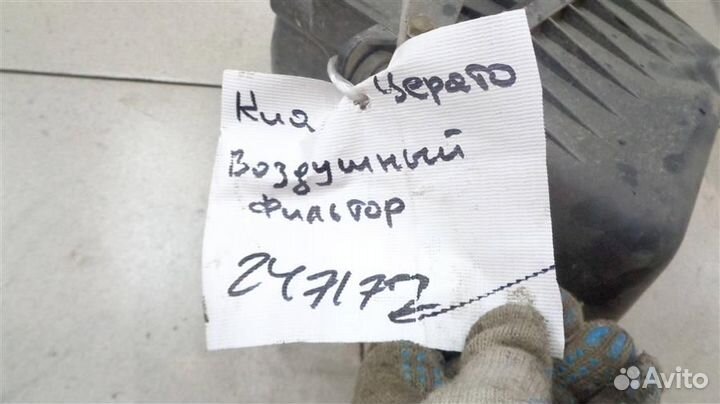 Киа Церато
Воздушный
фильтр
247172
Avito